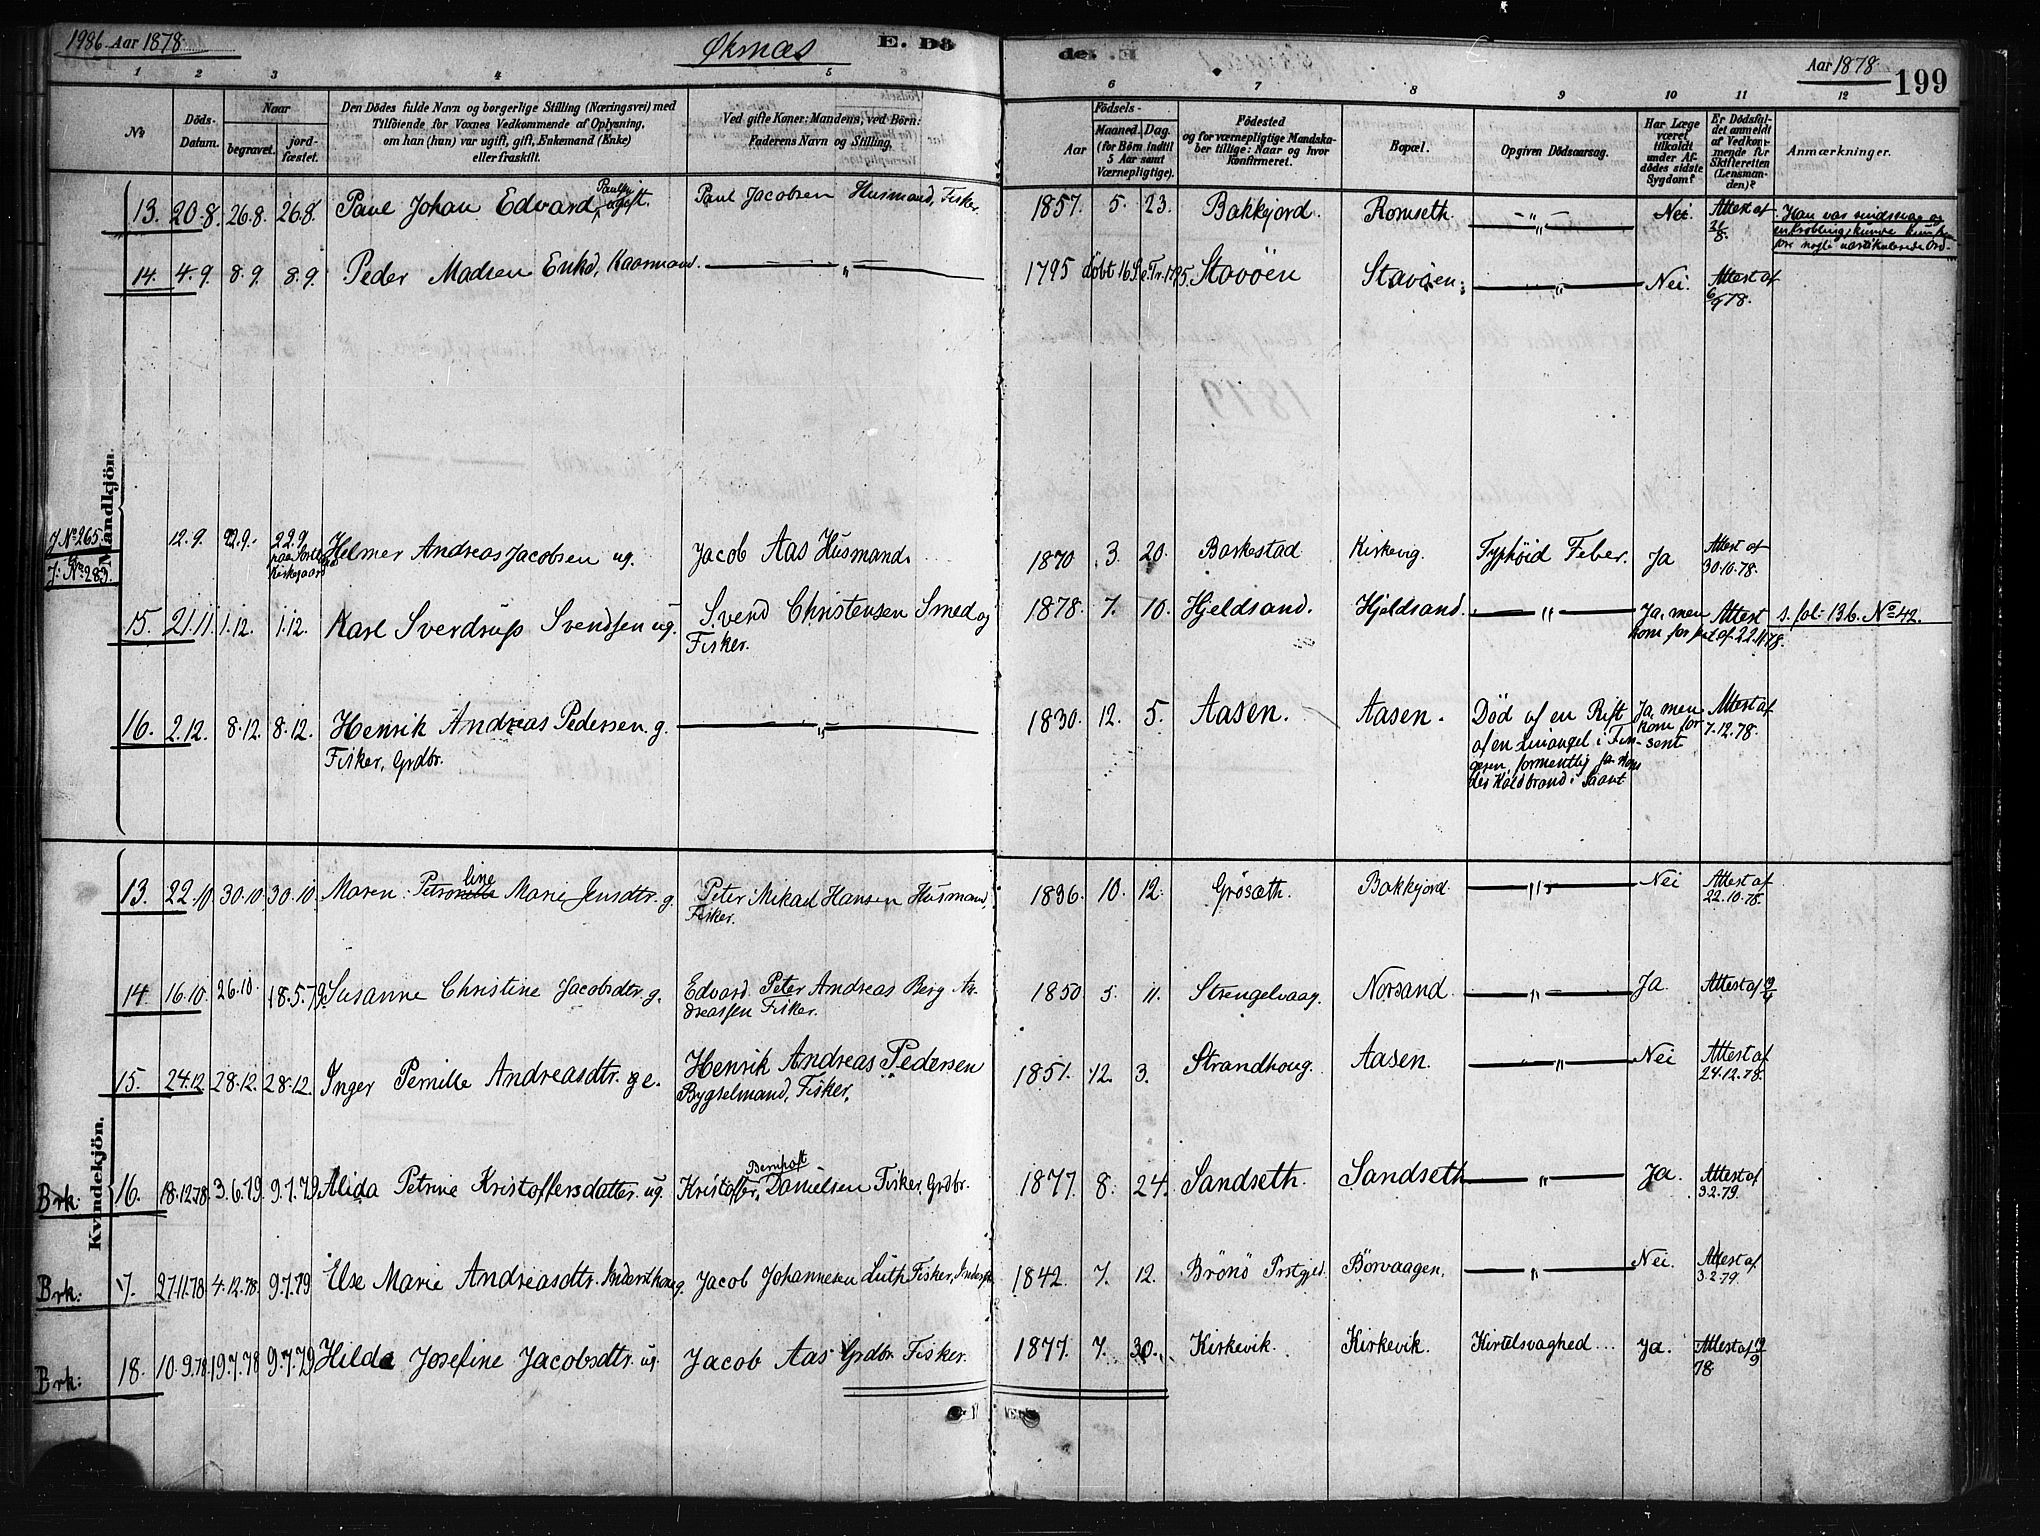 1986 Aar 1878
Øksnæs
E. Dö
de. E
Aar 1878
199
1 2 3 4 5 6 6 7 8 9 10 11 12
No
Döds-Datum.
Naar
begravet.
jord-fæstet.
Den Dödes fulde Navn og borgerlige Stilling (Næringsvei) med
Tilföiende for Voxnes Vedkommende af Oplysning,
om han (hun) var ugift, gift, Enkemand (Enke)
eller fraskilt.
Ved gifte Koner: Mandens, ved Börn:
Faderens Navn og Stilling.
Födsels-
Aar
Maaned. Dag.
(for Börn indtil
5 Aar samt
Værnepligtige).
Födested
og for værnepligtige Mandska-
ber tillige: Naar og hvor
Konfirmeret.
Bopæl.
Opgiven Dödsaarsag.
Har Læge
været
tilkaldt
under Af-
dödes sidste
Sygdom?
Er Dödsfal-
det anmeldt
af Vedkom-
mende for
Skifteretten
(Lensman-
den)?
Anmærkninger.
Mandkjön.
13. 20.8. 26.8. 26.8. Paul Johan Edvard ugift. Paul Jacobsen Husmand, Fisker. 1857. 5. 23. Bakkejord. Romseth. — " — Nei. Attest af
Han var sindssvag og
14. 4.9. 8.9. 8.9. Peder Madsen Enkd, Kaarmand. — " — 1795 döbt 16 S. e. Tr. 1795. Stavöen Stavöen. — " — Nei. Attest af
6/9 78.
J. No 265.
J: No 283.
12.9. 22.9. 22.9. Helmer Andreas Jacobsen ug. Jacob Aas Husmand. 1870 3. 20. Barkestad Kirkevig. Typhöid Feber. Ja Attest af
30.10.78.
Kirkegaard
15. 21.11. 1.12. 1.12. Karl Sverdrup Svendsen ug. Svend Christensen Smed og
Fisker.
1878. 7. 10. Hjeldsand. Hjeldsand. — " — Ja, men
Attest
af 22.11.78.
s. fol: 136. No 42.
16. 2.12. 8.12. 8.12. Henrik Andreas Pedersen g. — " — 1830. 12. 5. Aasen. Aasen.
Fisker, Grdbr.
Död af en Rift
af en Liniangel i Fin-
geren, formentlig
Koldbrand i Saaret
Ja, men
kom for
sent
Attest af
7.12.78.
Kvindekjön.
13. 22.10 30.10 30.10. Maren Petronelle line Marie Jensdtr. g. Peter Mikael Hansen Husmand,
Fisker.
1836. 10. 12. Grösæth. Bakkejord. — " — Nei Attest af
22.10.78.
14. 16.10. 26.10. 18.5.79. Susanne Christine Jacobsdtr. g. Edvard Peter Andreas Berg An-
dreassen Fisker.
1850. 5. 11. Strengelvaag. Norsand. — " — Ja. Attest af
15. 24.12 28.12. 28.12. Inger Pernille Andreasdtr. e. Henrik Andreas Pedersen
Bygselmand, Fisker.
1851. 12. 3. Strandhoug. Aasen. — " — Nei Attest af
24.12.78.
Brk: 16. 18.12.78. 3.6.79. 9.7.79. Alida Petrine Kristoffersdatter ug. Kristoffer Bernhoft Danielsen Fisker, Grdbr. 1877. 8. 24. Sandseth. Sandseth — " — Ja. Attest af
3.2.79.
Brk: 17. 27.11.78 4.12.78. 9.7.79 Else Marie Andreasdtr. g. Jacob Johannesen Luth Fisker, 1842. 7. 12. Brönö Prstgjed. Börvaagen. — " — Nei. Attest af
3.2.79.
Brk: 18. 10.9.78. 19.7.78 9.7.79 Hilda Josefine Jacobsdtr. ug. Jacob Aas Grdbr. Fisker. 1877. 7. 30. Kirkevik. Kirkevik. Kirtelsvaghed... Ja. Attest af 19/9
78